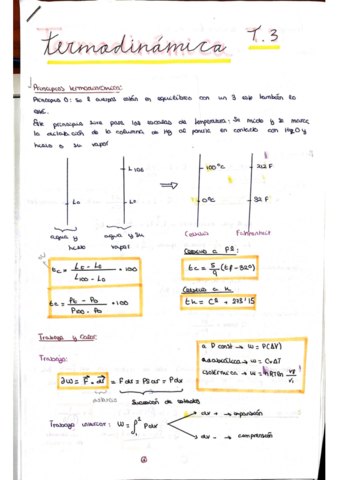 Termodinámica T.3
Principios termodinámica:
Principio 0: Si 2 cuerpos están en equilibrio con un 3 este también lo
está.
Este principio sirve para las escalas de temperatura: Se mide y se marca
la dilatación de la columna de Hg al ponerla en contacto con H2O y
hielo o su vapor
L100
L0
L0
100ºC
0ºC
212 F
32 F
agua y hielo
agua y su vapor
Celsius
Fahrenheit
tc = (Lt - L0) / (L100 - L0) · 100
tc = (Pt - P0) / (P100 - P0) · 100
Celsius a Fº:
tc = 5/9 (tF - 32º)
Celsius a K:
tK = Cº + 273'15
Trabajo y Calor:
Trabajo:
a P const → W = P(ΔV)
adiabática → W = Cv ΔT
isotérmica → W = nRT Ln Vf/Vi
∂W = F · dr = F dx = PS dx = P dv
Sucesión de estados
Trabajo exterior: W = ∫ P dv
dv + → expansión
dv - → compresión